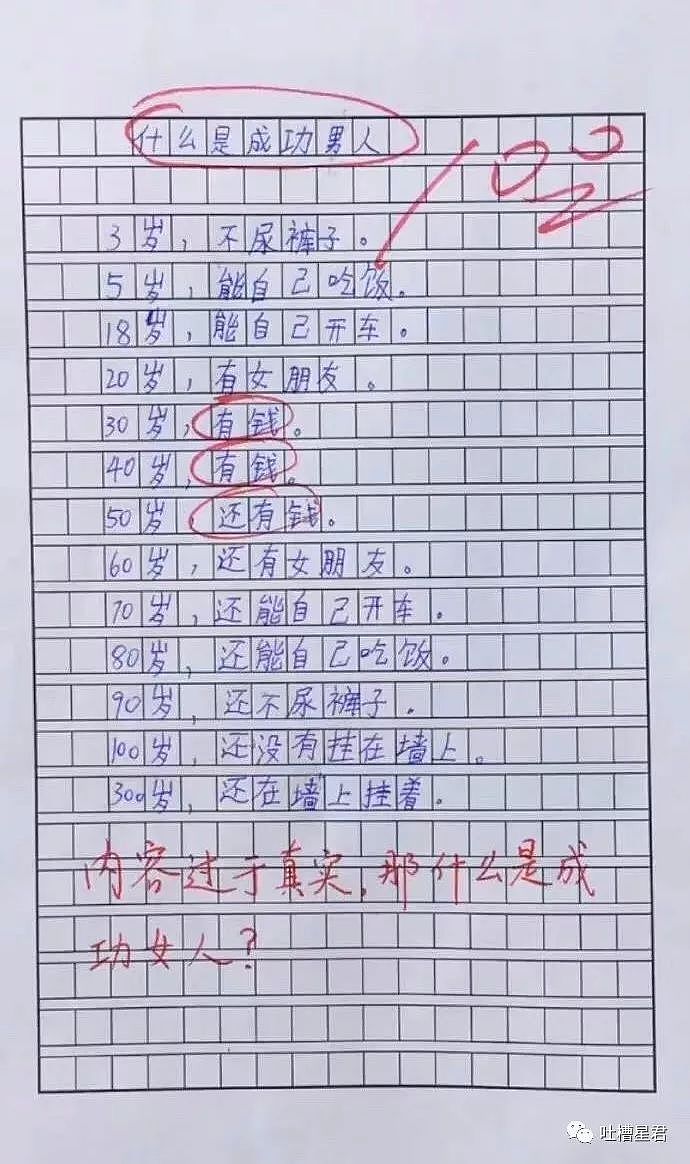 什么是成功男人
3岁，不尿裤子。
5岁，能自己吃饭。
18岁，能自己开车。
20岁，有女朋友。
30岁，有钱。
40岁，有钱。
50岁，还有钱。
60岁，还有女朋友。
70岁，还能自己开车。
80岁，还能自己吃饭。
90岁，还不尿裤子。
100岁，还没有挂在墙上。
300岁，还在墙上挂着。
内容过于真实，那什么是成
功女人？
吐槽星君